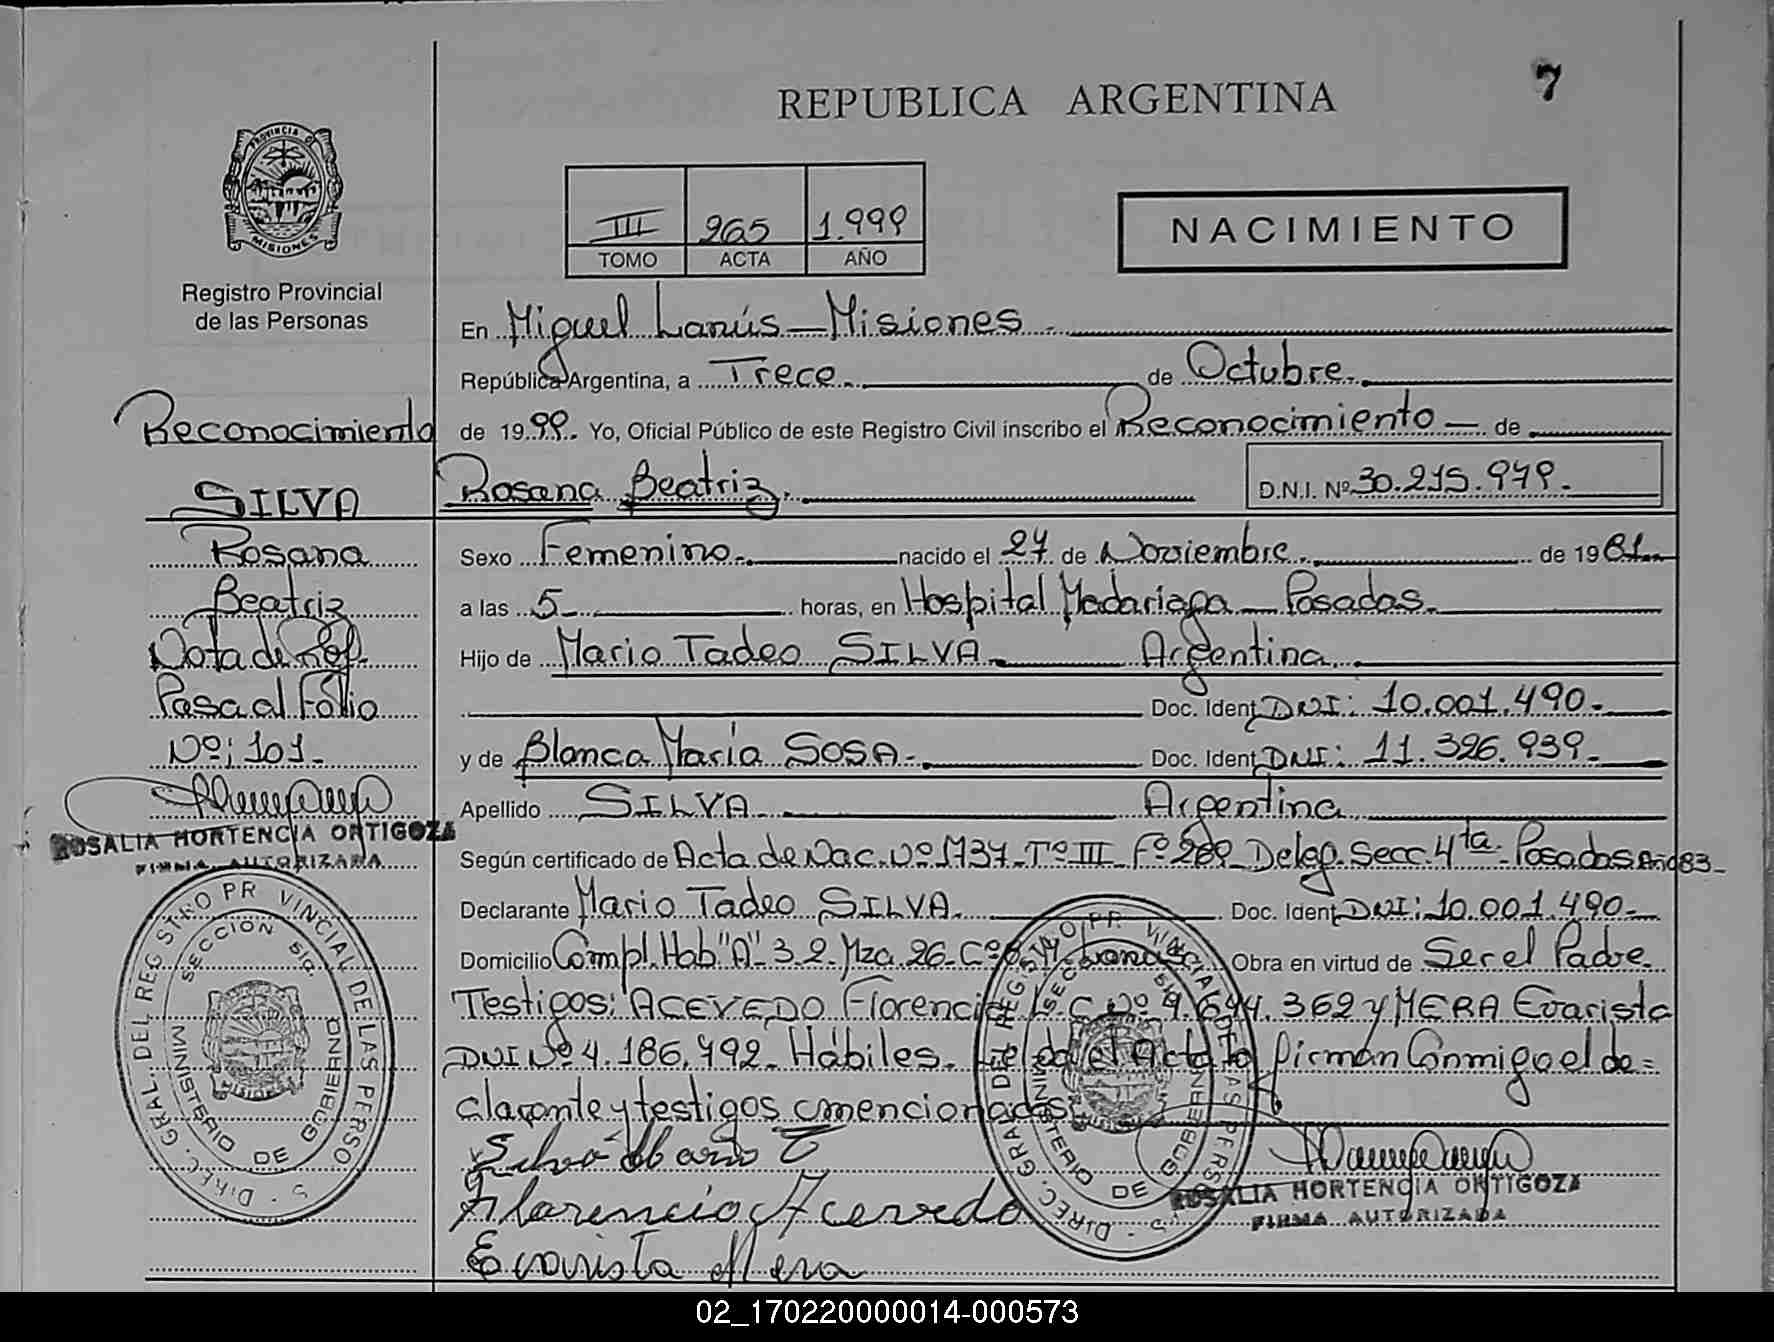 7
REPUBLICA ARGENTINA
PROVINCIA D
MISIONES
Registro Provincial
de las Personas
III 265 1.999
TOMO ACTA AÑO
NACIMIENTO
En Miguel Lanús - Misiones
República Argentina, a Trece. de Octubre.
de 1999. Yo, Oficial Público de este Registro Civil inscribo el Reconocimiento - de
Rosana Beatriz. D.N.I. Nº 30.215.979.
Sexo Femenino. nacido el 27 de Noviembre. de 1981
a las 5 horas, en Hospital Madariaga - Posadas.
Hijo de Mario Tadeo SILVA Argentina.
Doc. Ident DNI: 10.001.490.
y de Blanca María SOSA. Doc. Ident DNI: 11.326.939.
Apellido SILVA Argentina
Según certificado de Acta de Nac. Nº 1737 Tº III Fº Deleg. Secc. 4ta. Posadas Año 83-
Declarante Mario Tadeo SILVA. Doc. Ident DNI: 10.001.490.
Domicilio Compl. Hab "A" 3.2. Mza. 26. Cº Obra en virtud de Ser el Padre
Testigos: ACEVEDO Florencio L.C Nº 9.644.362 y MERA Evarista
DNI Nº 4.186.792. Hábiles. Leída el Acta la firman Conmigo el de=
clarante y testigos mencionados.
Silva Mario T
Florencio Acevedo
Evarista Mera
ROSALIA HORTENCIA ORTIGOZA
FIRMA AUTORIZADA
DIREC. GRAL. DEL REGISTRO PR VINCIAL DE LAS PERSO S
SECCION
MINISTERIO DE GOBIERNO
Reconocimiento
SILVA
Rosana
Beatriz
Nota de Ref.
Pasa al Fólio
Nº: 101-
ROSALIA HORTENCIA ORTIGOZA
FIRMA AUTORIZADA
DIREC. GRAL. DEL REGISTRO PR VINCIAL DE LAS PERSO S
SECCION
MINISTERIO DE GOBIERNO
02_170220000014-000573